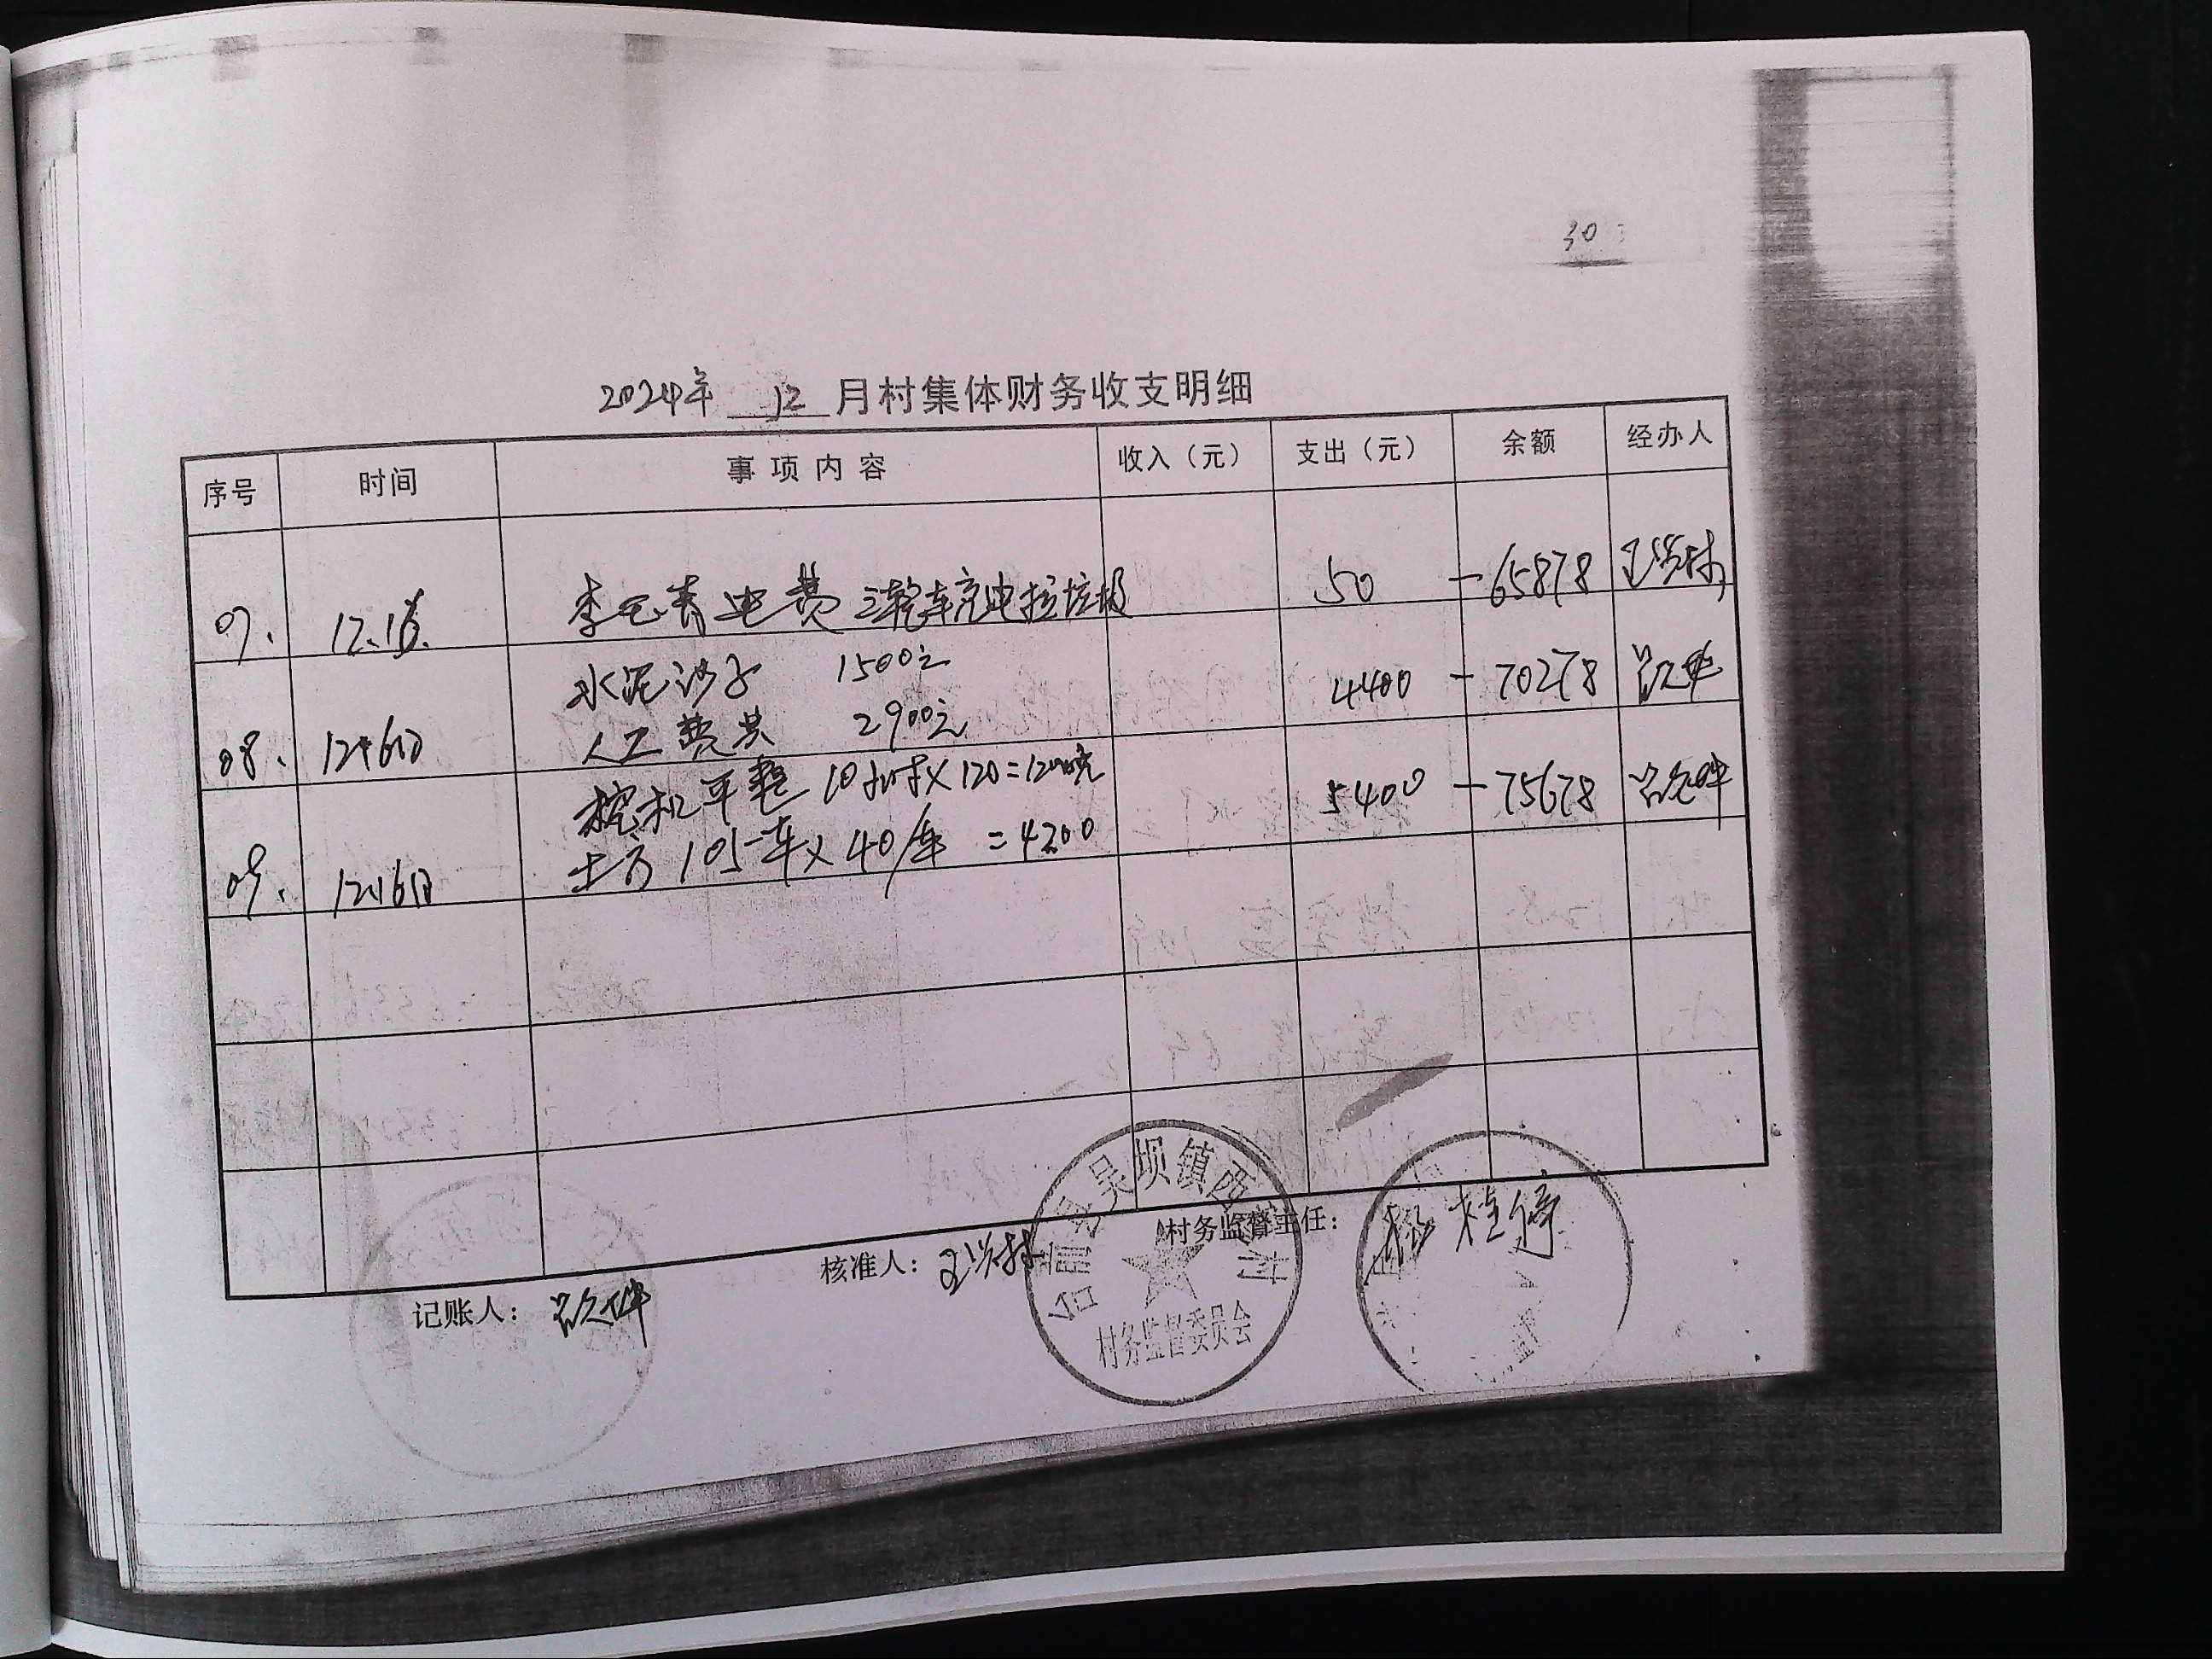 30
2024年 12 月村集体财务收支明细
序号 时间 事项内容 收入（元） 支出（元） 余额 经办人
07. 12.16. 李 青电费 三轮车充电拉垃圾 50 -65878
08. 12.16日 水泥沙子 1500元 4400 -70278
人工费共 2900元
09. 12.16日 挖机平整 10小时×120=1200元 5400 -75678
土方 105车×40/车 =4200
记账人： 核准人： 村务监督主任：
吴坝镇西 村
村务监督委员会